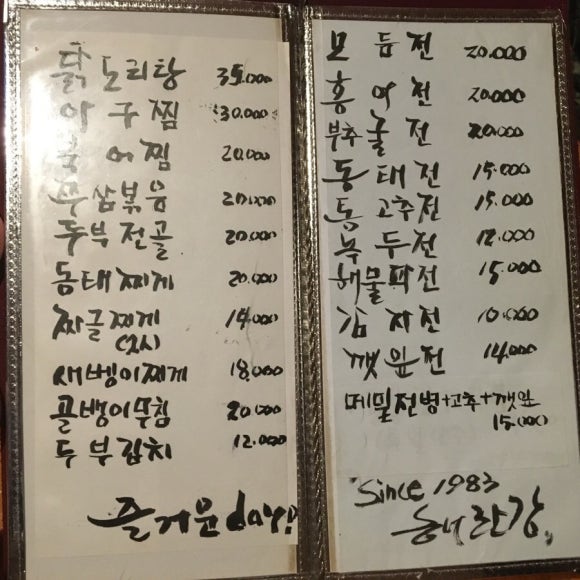 닭도리탕 35.000
아구찜 30.000
홍어찜 20.000
두삼볶음 20.000
두부전골 20.000
동태찌게 20.000
짜글찌게 14.000
새뱅이찌게 18.000
골뱅이무침 20.000
두부김치 12.000
즐거운 day!
모듬전 20.000
홍어전 20.000
부추굴전 20.000
동태전 15.000
통고추전 15.000
녹두전 12.000
해물파전 15.000
감자전 10.000
깻잎전 14.000
메밀전병+고추+깻잎
15.000
Since 1983